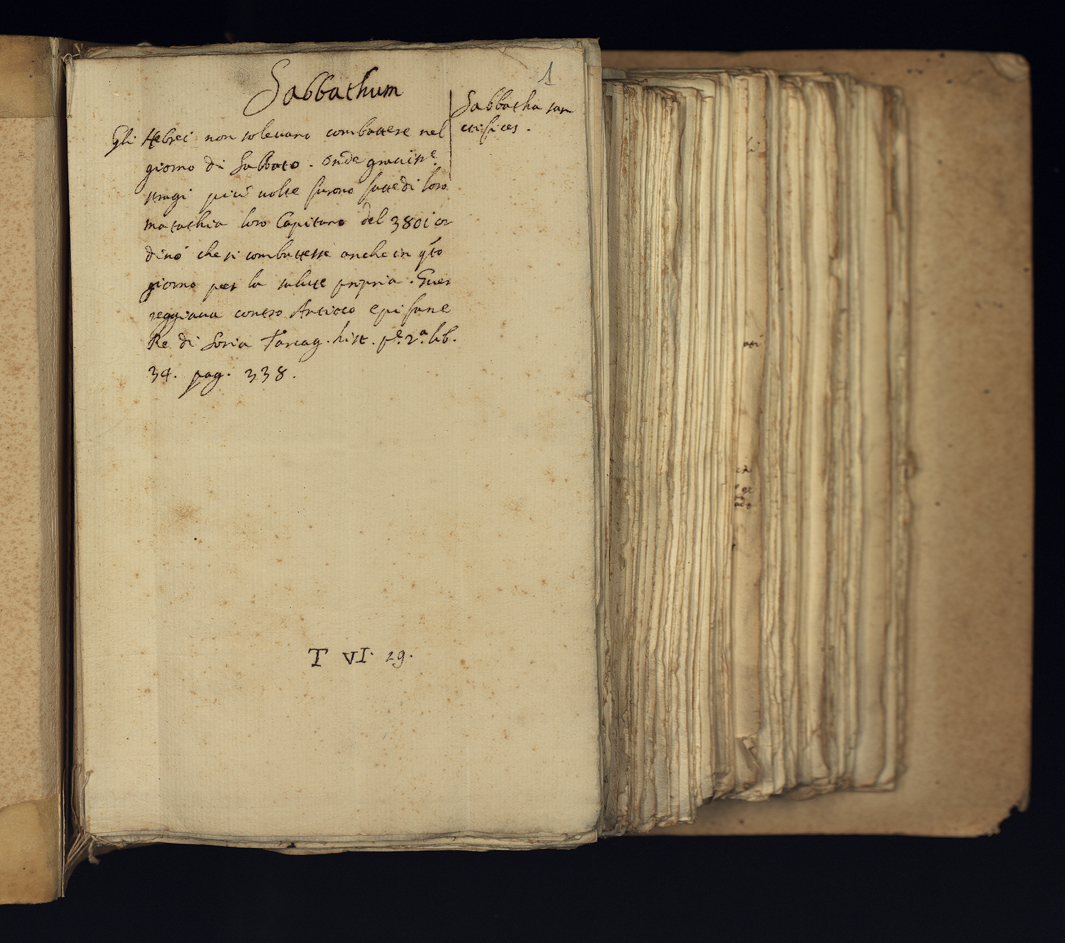 1
Sabbathum
Sabbatha san
ctifices.
Gli Hebrei non solevano combattere nel
giorno di Sabbato. onde graviss.e
stragi più volte furono fatte di loro
matathia loro Capitano del 3801 or
dinò che si combattesse anche in q.to
giorno per la salute propria. Guer
reggiava contro Antioco epifane
Re di Soria Tarcag. hist. p.e 2.a lib.
34. pag. 338.
T VI. 29.